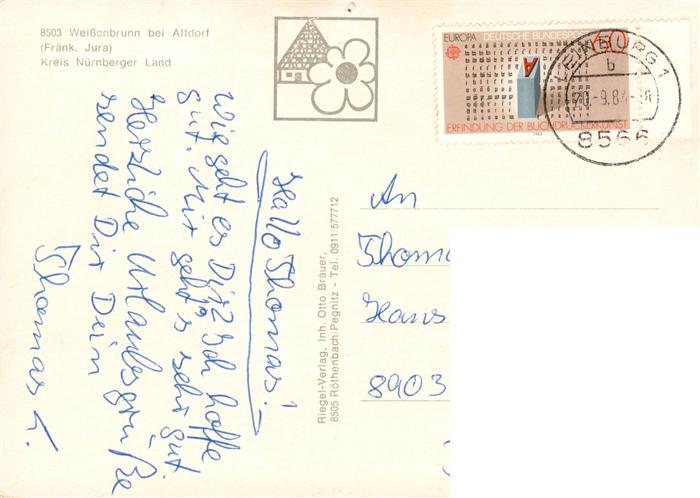 8503 Weißenbrunn bei Altdorf
(Fränk. Jura)
Kreis Nürnberger Land
EUROPA DEUTSCHE BUNDESPOST 60
A
ERFINDUNG DER BUCHDRUCKERKUNST
1983
LEINBURG 1
b
-9.84
8566
Hallo Thomas!
Wie geht es Dir? Ich hoffe
gut. Mir geht's sehr gut.
Herzliche Urlaubsgrüße
sendet Dir Dein
Thomas L.
Riegel-Verlag, Inh. Otto Bräuer,
8505 Röthenbach/Pegnitz - Tel. 0911/577712
An
Thoma
Hans
8903